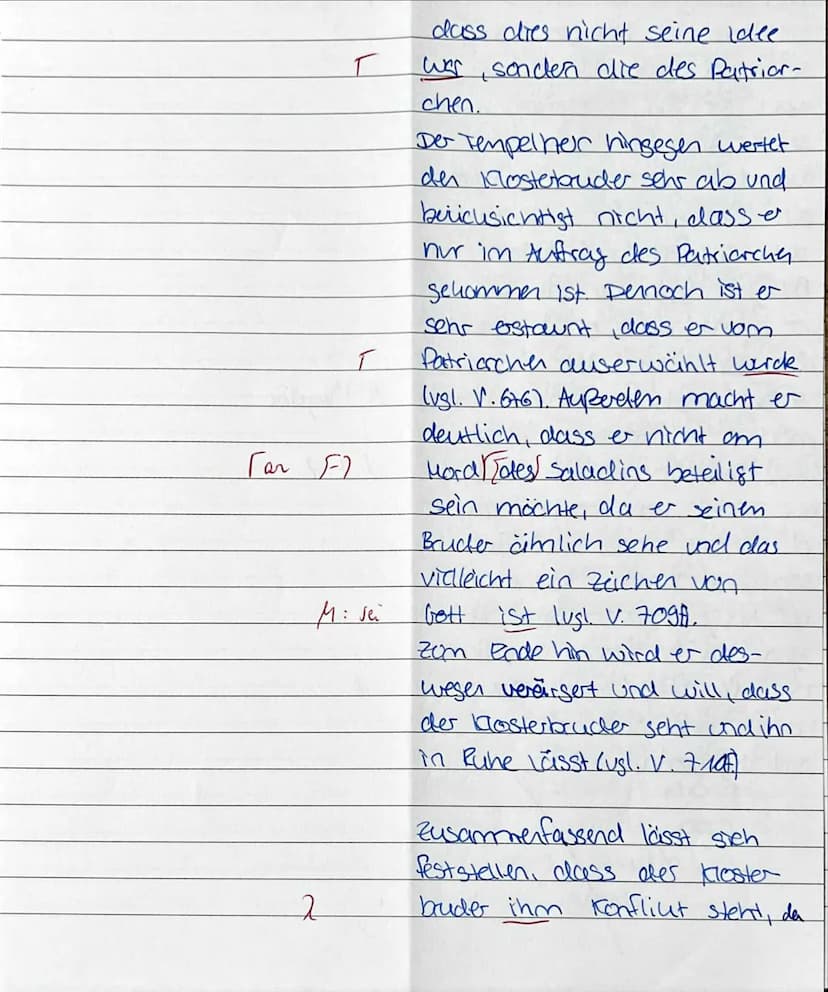 dass dies nicht seine Idee
T war, sondern die des Patriar-
chen.
Der Tempelherr hingegen wertet
den Klosterbruder sehr ab und
berücksichtigt nicht, dass er
nur im Auftrag des Patriarchen
gekommen ist. Dennoch ist er
sehr erstaunt, dass er vom
T Patriarchen auserwählt wurde
(vgl. V. 676). Außerdem macht er
deutlich, dass er nicht am
Γan F7 Mord des Saladins beteiligt
sein möchte, da er seinen
Bruder ähnlich sehe und das
vielleicht ein Zeichen von
M: sei Gott ist (vgl. V. 709f).
Zum Ende hin wird er des-
wegen verärgert und will, dass
der Klosterbruder geht und ihn
in Ruhe lässt (vgl. V. 710f)
Zusammenfassend lässt sich
feststellen, dass der Kloster
bruder ihm Konflikt steht, da